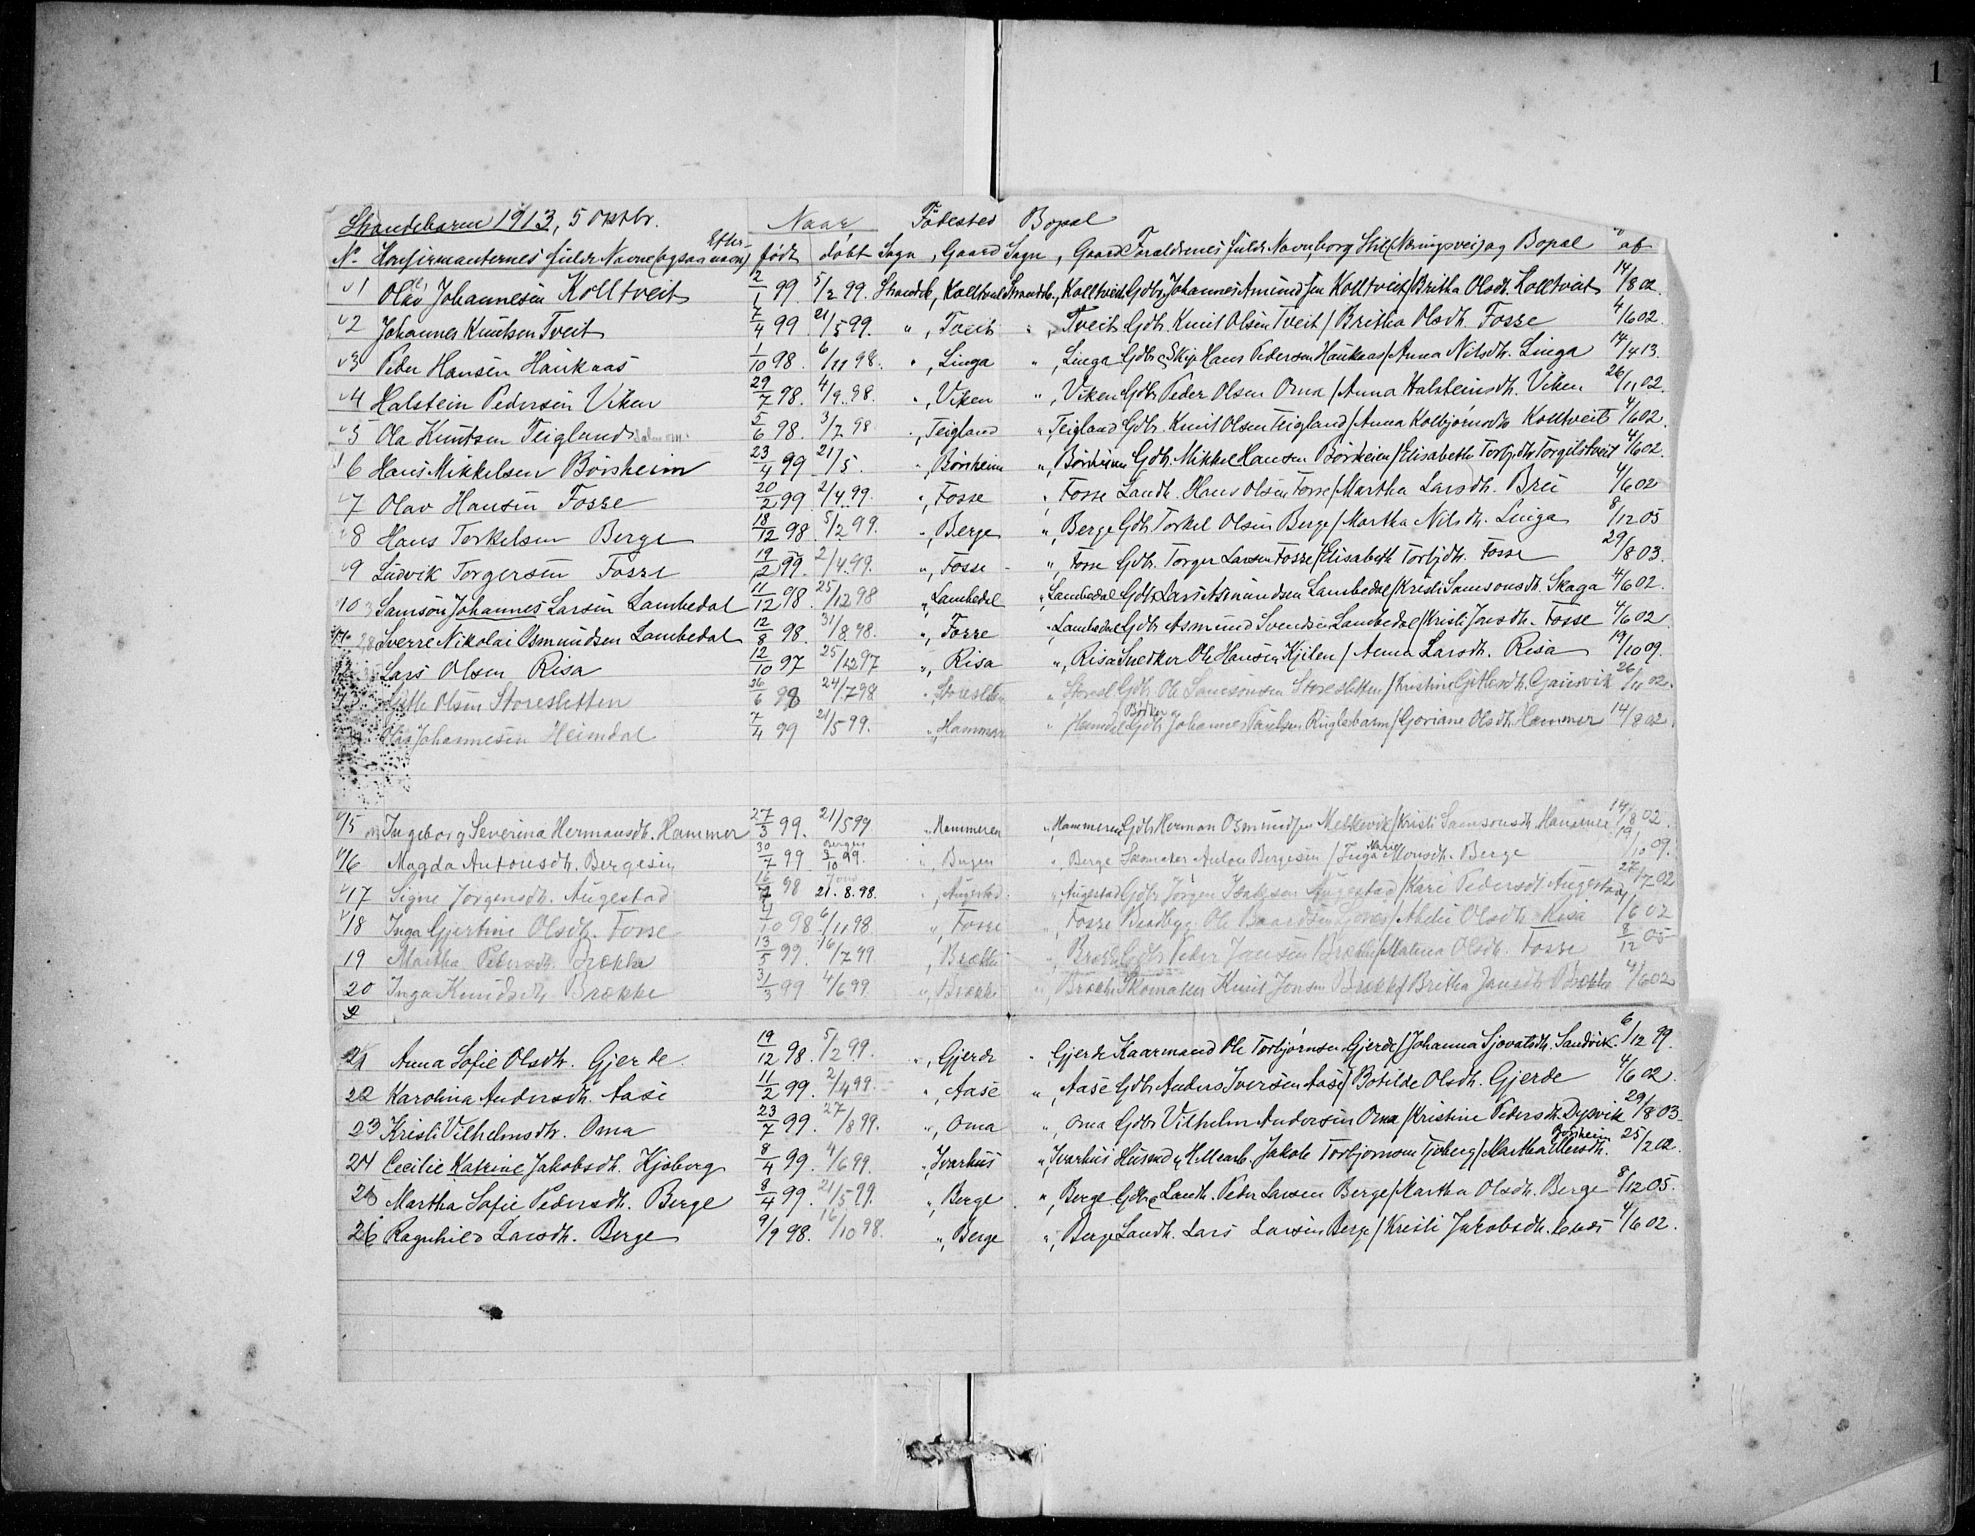 1
Strandebarm 1913, 5 oktbr. Naar Födested Bopæl
No. Konfirmanternes fulde Navne (ogsaa Efternavn) födt döbt Sogn, Gaard Sogn, Gaard Forældrenes fulde Navn, borg Stil (Næringsvei) og Bopæl af
1 Olav Johannesen Kolltveit 2/1 99 5/2 99. Strandeb., Kolltveit Strandb., Kolltveit Gdbr. Johannes Amundsen Kolltveit / Britha Olsdt. Kolltveit 14/8 02.
2 Johannes Knutsen Tveit 7/4 99 21/5 99. " , Tveit " , Tveit Gdb. Knut Olsen Tveit / Britha Olsdt. Fosse 4/6 02.
3 Peder Hansen Haukaas 1/10 98. 6/11 98. " , Linga " , Linga Gdbr. Skip. Hans Pedersen Haukaas / Anna Nilsdt. Linga 14/4 13.
4 Halstein Pedersen Viken 29/7 98. 4/9. 98. " , Viken " , Viken Gdb. Peder Olsen Oma / Anna Halsteinsdt. Viken 26/11 02.
5 Ola Knutsen Teigland 5/6 98. 3/7 98 " , Teigland " , Teigland Gdb. Knut Olsen Teigland / Anna Kolbjörnsdt. Kolltveit 4/6 02.
6 Hans Mikkelsen Börsheim 23/4 99 21/5. " Börsheim " , Börsheim Gdb. Mikkel Hansen Börsheim / Elisabeth Torbjdt. Torgilstveit 4/6 02.
7 Olav Hansen Fosse 20/2 99 2/4. 99. " , Fosse " , Fosse Landh. Hans Olsen Fosse / Martha Larsdt. Brei 4/6 02
8 Hans Torkelsen Berge 18/12 98. 5/2 99. " , Berge " , Berge Gdb. Torkel Olsen Berge / Martha Nilsdt. Linga 8/12 05
9 Ludvik Torgersen Fosse 19/2 99. 2/4. 99. " , Fosse " , Fosse Gdb. Torger Larsen Fosse / Elisabeth Torbjdt. Fosse 29/8 03.
10 Samson Johannes Larsen Lambedal 11/12 98. 25/12 98 " , Lambedal " , Lambedal Gdb. Lars Asmundsen Lambedal / Kristi Samsonsdt. Skaga 4/6 02.
Sverre Nikolai Osmundsen Lambedal 12/8 98. 31/8. 98. " , Fosse " , Lambedal Gdb. Asmund Svendsen Lambedal / Kristi Jonsdt. Fosse 4/6 02.
Lars Olsen Risa 12/10 97 25/12 97 " , Risa " , Risa Snedker Ole Hansen Kjilen / Anna Larsdt. Risa 19/10 09.
Gitle Olsen Storesletten 26/6 98 24/7 98 " , Storesletten " , Storesl. Gdb. Ole Samsonsen Storesletten / Kristine Gitlesdt. Gausvik 26/11 02.
Johannesen Heimdal 7/4 99 21/5 99. " , Hammer " Heimdal Gdb. Johannes Paulsen Ruglebarm / Goriane Olsdt. Hammer 14/8 02.
15 Ingeborg Severina Hermansdt. Hammer 27/3 99. 21/5 99 " Hammeren " , Hammeren Gdb. Herman Osmundsen Melkevik / Kristi Samsonsdt. Hammer 14/8 02.
16 Magda Antonsdt. Bergesen 30/7 99 Bergen 3/10 99. " Bergen " , Berge Skomaker Anton Bergesen / Inga Marie Monsdt. Berge 19/10 09.
17 Signe Jörgensdt. Augestad 16/7 98 Jond 21. 8. 98. " , Augestad " , Augestad Gdb. Jörgen Isaksen Augestad / Kari Pedersdt. Augestad 27/7 02
18 Inga Gjertine Olsdt. Fosse 10 98 6/11 98. " , Fosse " , Fosse Baadbyg. Ole Baardsen / Olsdt. Risa 4/6 02
19 Martha Pedersdt. Brække 13/5 99. 16/7 99 " , Brække " , Brække Gdb. Peder Jonsen Brække / Malena Olsdt. Fosse 8/12 05
20 Inga Knudsdt. Brække 31/3 99 4/6 99 " , Brække " , Brække Skomaker Knut Jonsen Brække / Britha Jansdt. Brække 4/6 02
21 Anna Sofie Olsdt. Gjerde. 19/12 98. 5/2 99. " , Gjerde " , Gjerde Kaarmand Ole Torbjörnsen Gjerde / Johanna Sjovatsdt. Sandvik. 6/12 99.
22 Karolina Andersdt. Aase 11/2 99. 2/4 99. " , Aase " , Aase Gdb. Anders Iversen Aase / Botilde Olsdt. Gjerde 4/6 02.
23 Kristi Vilhelmsdt. Oma 23/7 99. 27/8 99. " , Oma " , Oma Gdbr. Vilhelm Andersen Oma / Kristine Pedersdt. Dysvik 29/8 03.
24 Cecilie Katrine Jakobsdt. Kjoberg 8/4 99. 4/6 99. " , Ivarhus " , Ivarhus Husmd. Jakob Torbjörnsen Tjoberg / Martha Olersdt. Börsheim 25/2 02.
25 Martha Sofie Pedersdt. Berge 8/4 99. 21/5 99. " , Berge " , Berge Gdb. Landh. Peder Larsen Berge / Martha Olsdt. Berge 8/12 05.
26 Ragnhild Larsdt. Berge 9/9 98. 16/10 98. " , Berge " , Berge Landh. Lars Larsen Berge / Kristi Jakobsdt. 4/6 02.